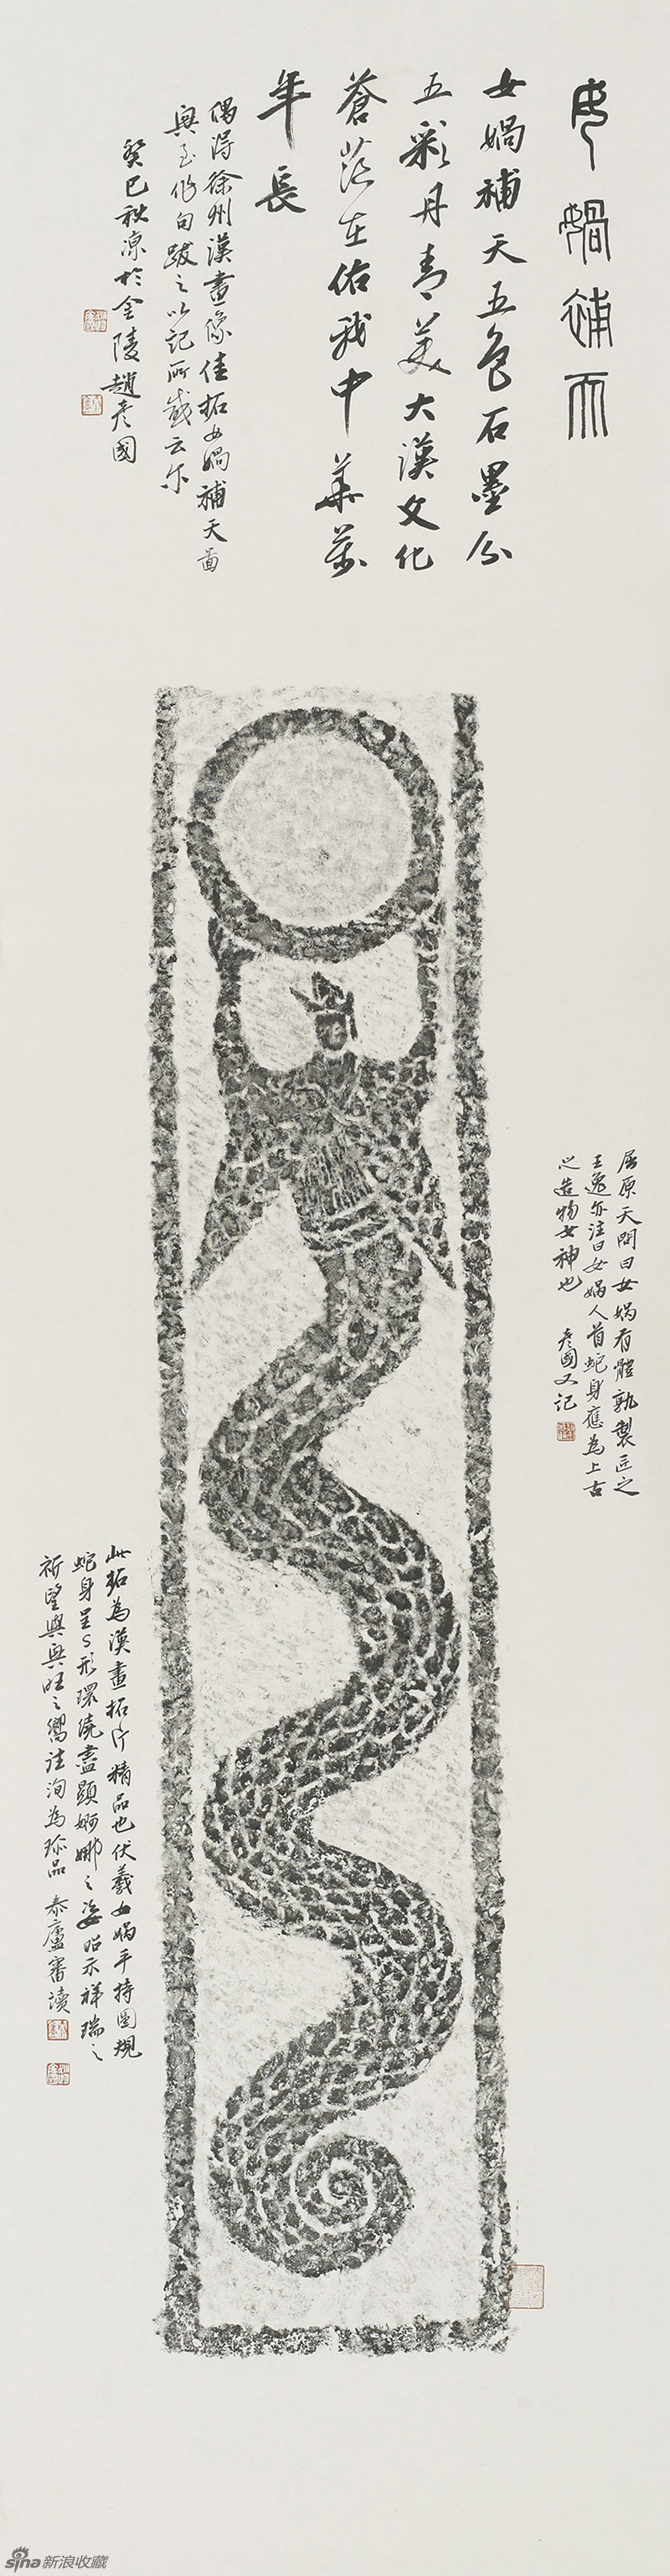 女媧補天
女媧補天五色石墨分
五彩丹青美大漢文化
蒼茫在佑我中華萬
年長
偶得徐州漢畫像佳拓女媧補天圖
興至作句跋之以記所感云尔
癸巳秋凉於金陵趙彦國
屈原天問曰女媧有體孰製匠之
王逸亦注曰女媧人首蛇身應為上古
之造物女神也 彦國又記
此拓為漢畫拓片精品也伏羲女媧手持圓規
蛇身呈S形環繞盡顯婀娜之姿昭示祥瑞之
祈望與興旺之嚮往洵為珍品 泰廬審讀
sina新浪收藏